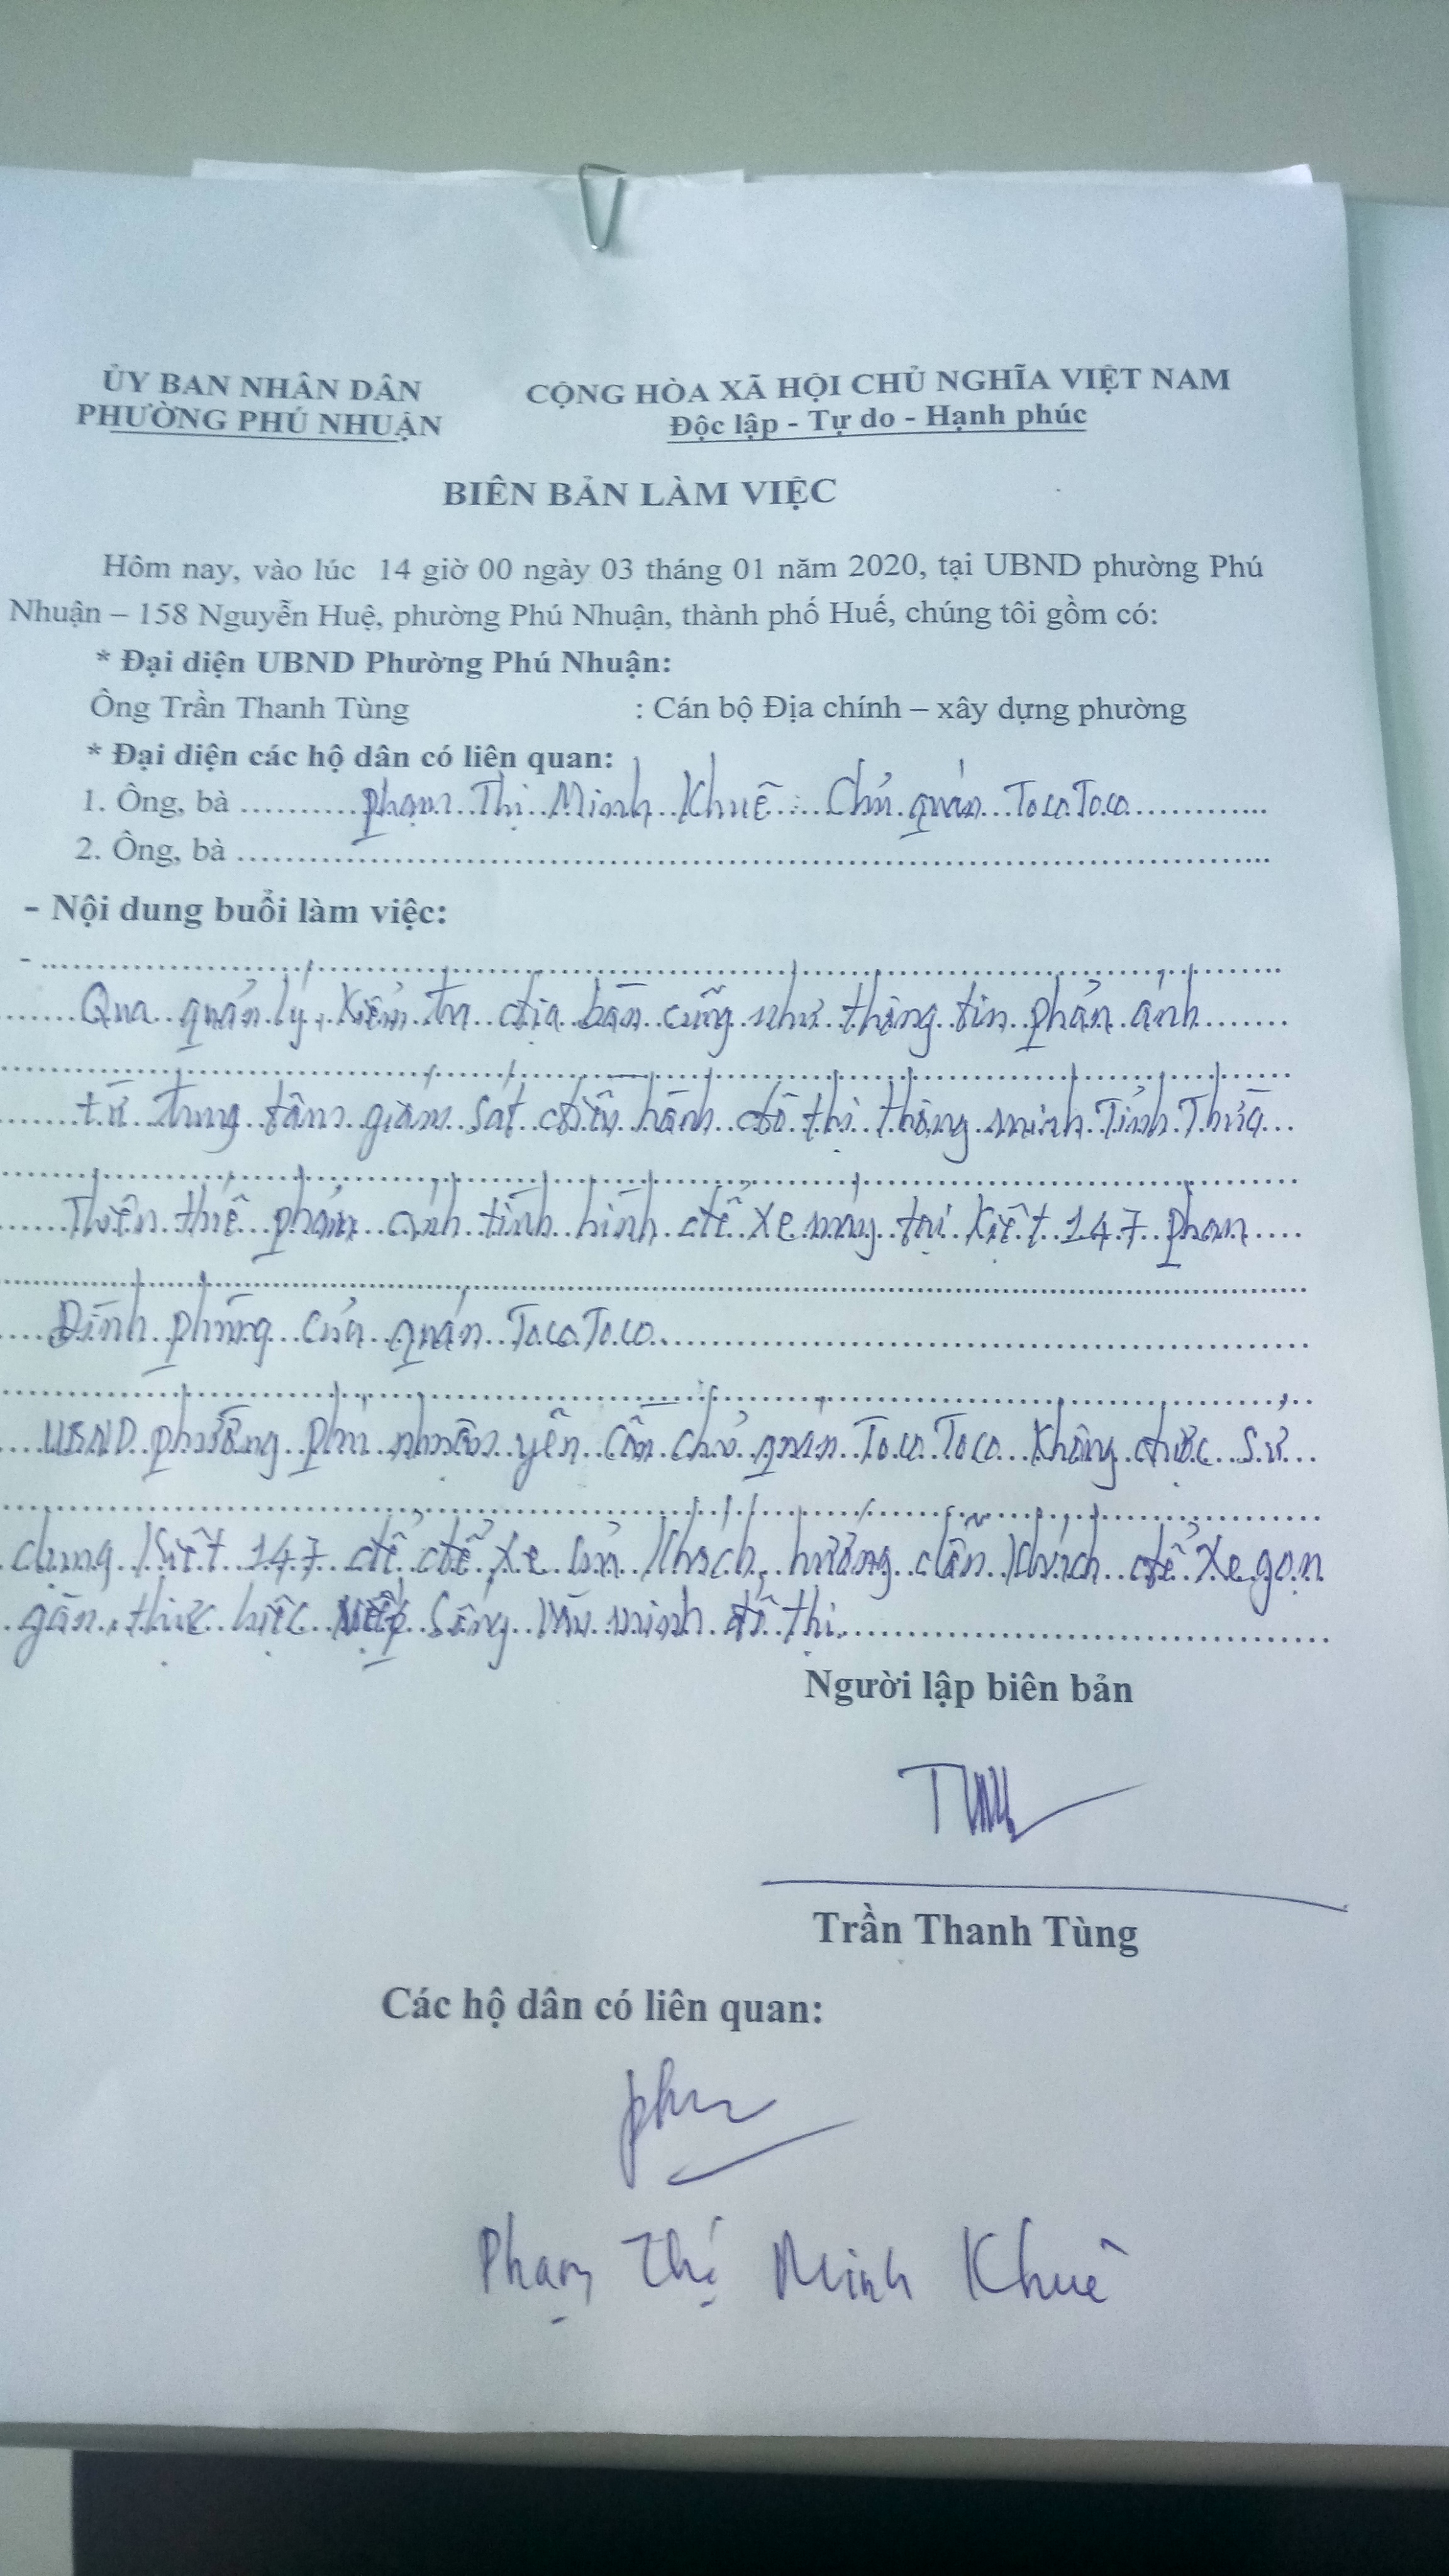 ỦY BAN NHÂN DÂN
PHƯỜNG PHÚ NHUẬN
CỘNG HÒA XÃ HỘI CHỦ NGHĨA VIỆT NAM
Độc lập - Tự do - Hạnh phúc
BIÊN BẢN LÀM VIỆC
Hôm nay, vào lúc 14 giờ 00 ngày 03 tháng 01 năm 2020, tại UBND phường Phú
Nhuận – 158 Nguyễn Huệ, phường Phú Nhuận, thành phố Huế, chúng tôi gồm có:
* Đại diện UBND Phường Phú Nhuận:
Ông Trần Thanh Tùng : Cán bộ Địa chính – xây dựng phường
* Đại diện các hộ dân có liên quan:
1. Ông, bà Phạm Thị Minh Khuê : Chủ quán ToCoToCo
2. Ông, bà
- Nội dung buổi làm việc:
-
Qua quản lý, kiểm tra địa bàn cũng như thông tin phản ánh
từ trung tâm giám sát điều hành đô thị thông minh Tỉnh Thừa
Thiên Huế phản ánh tình hình để xe máy tại Kiệt 147 Phan
Đình Phùng của quán ToCoToCo
UBND phường Phú Nhuận yêu cầu chủ quán ToCoToCo không được sử
dụng Kiệt 147 để để xe của khách, hướng dẫn khách để xe gọn
gàn, thực hiện nếp sống văn minh đô thị.
Người lập biên bản
Trần Thanh Tùng
Các hộ dân có liên quan:
Phạm Thị Minh Khuê